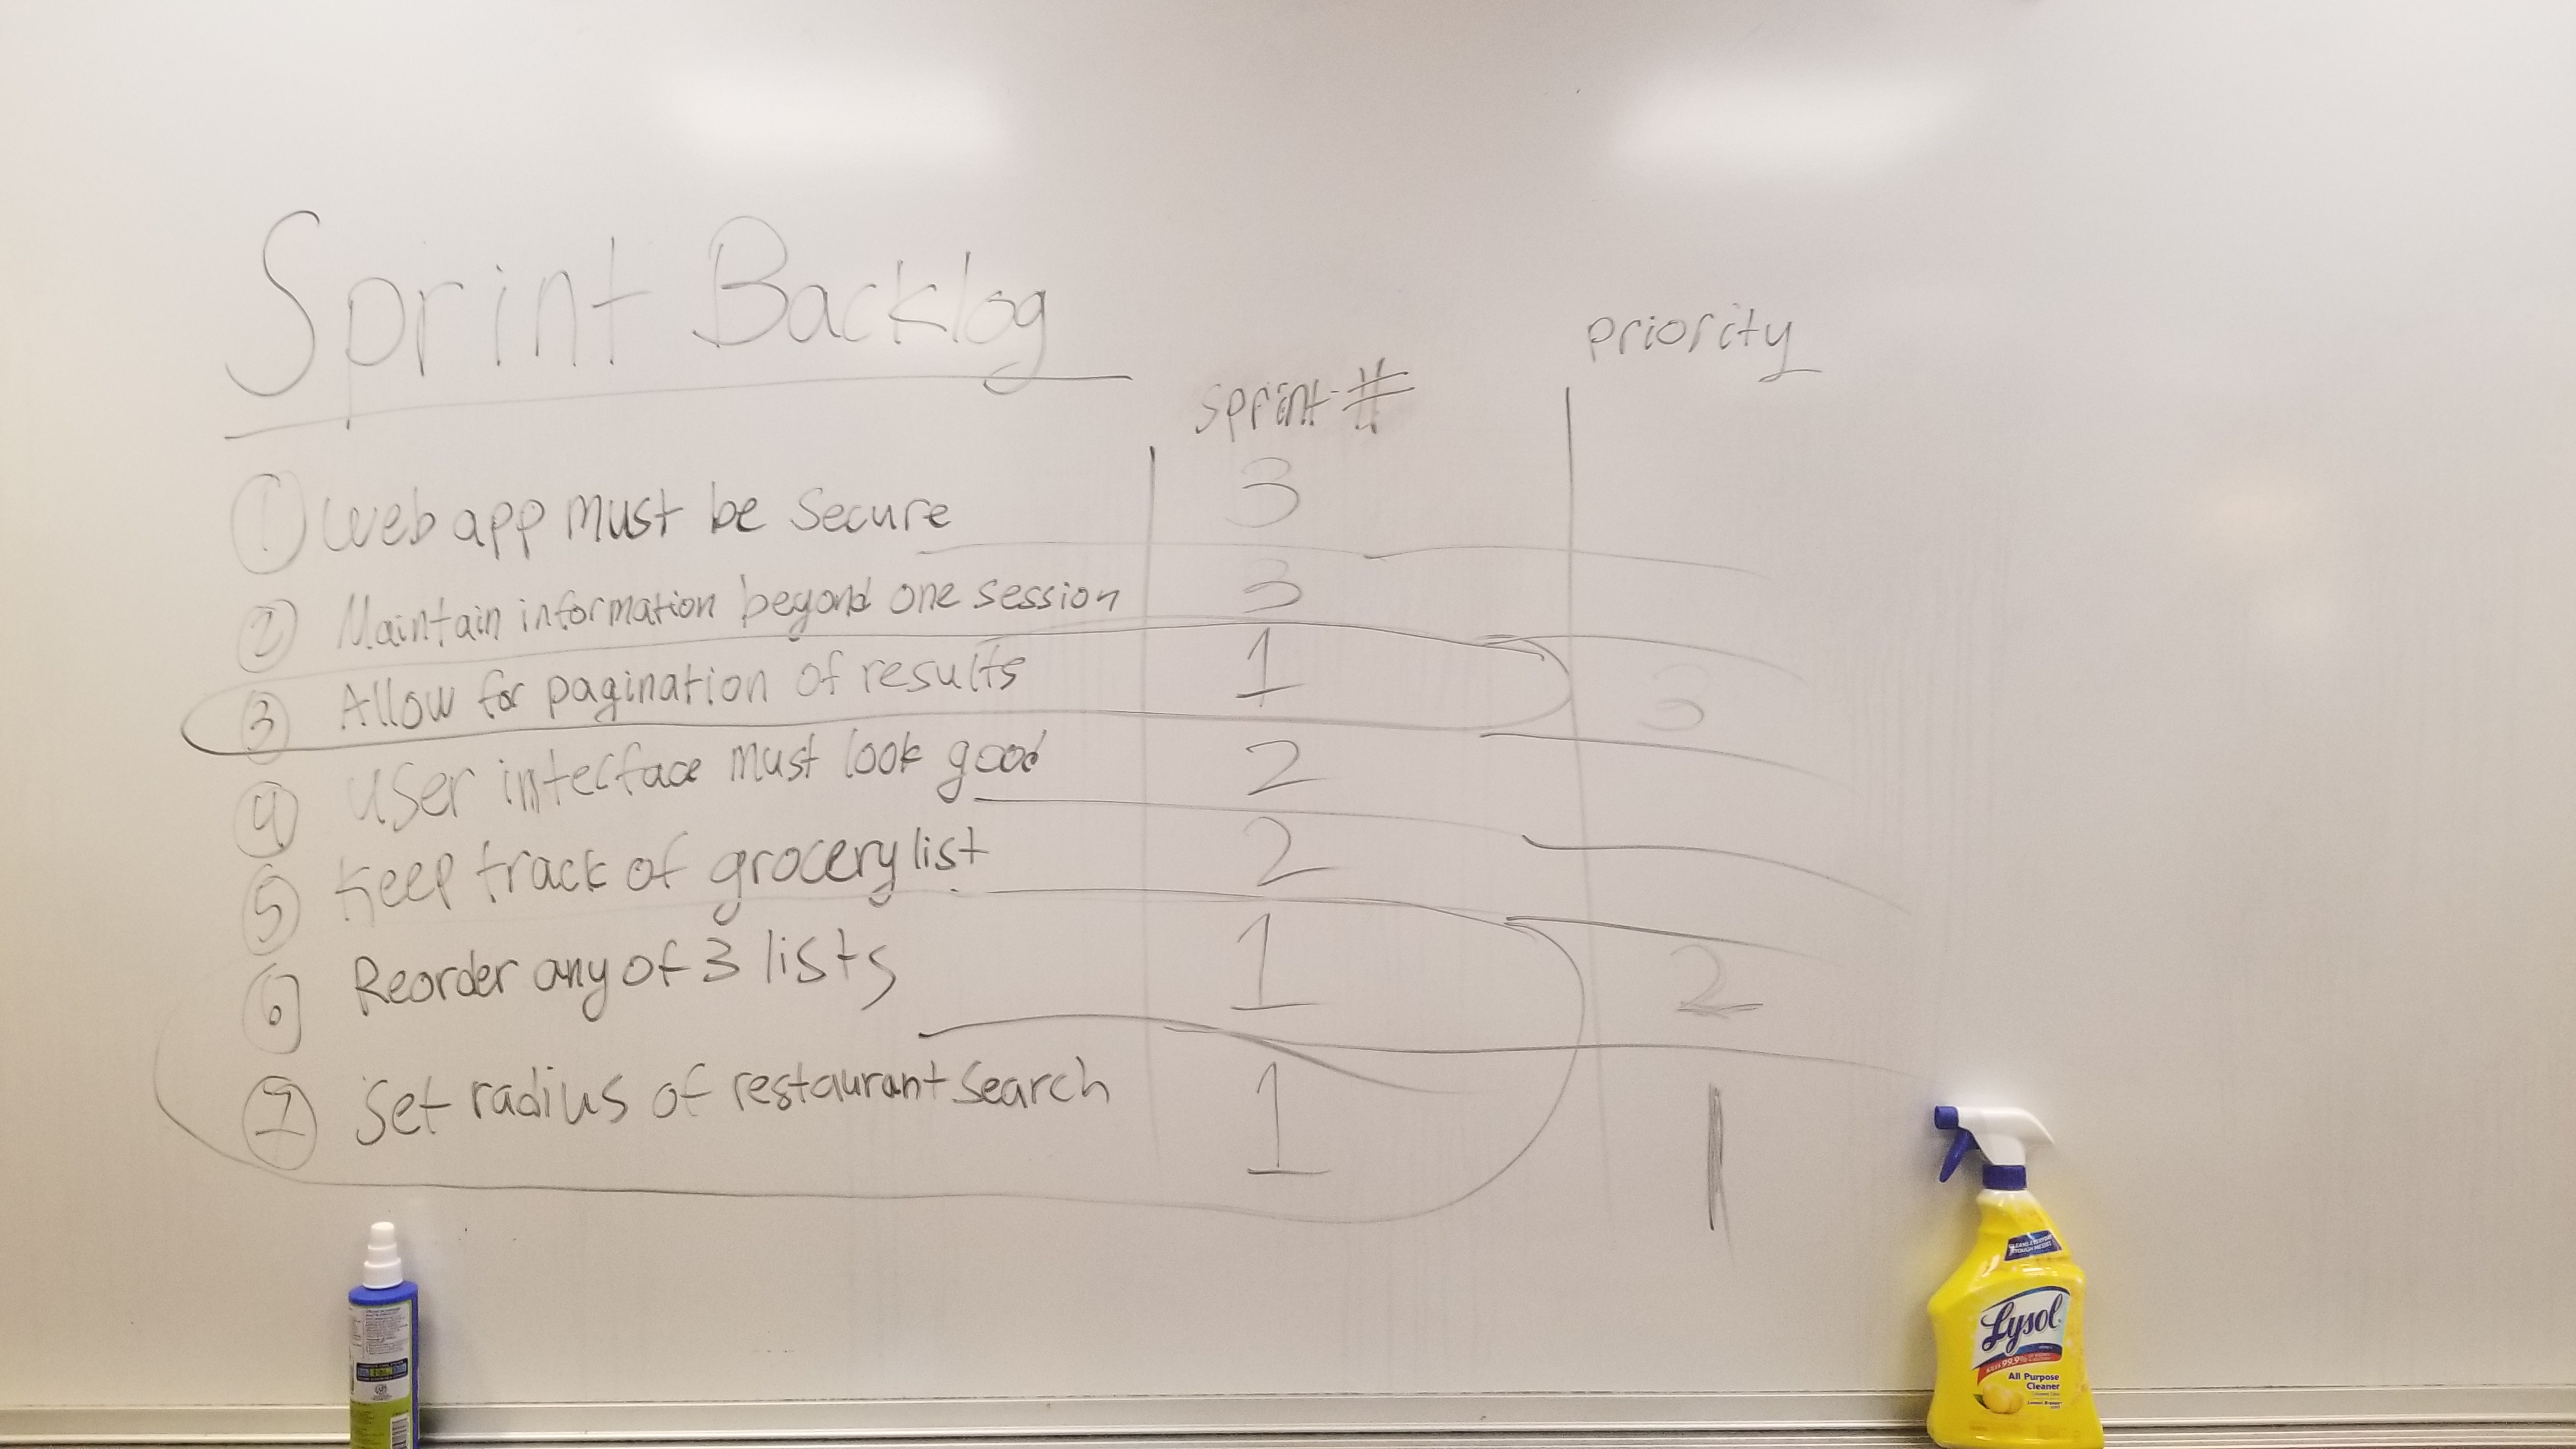 Sprint Backlog
sprint # priority
1 Web app must be secure 3
2 Maintain information beyond one session 3
3 Allow for pagination of results 1 3
4 User interface must look good 2
5 Keep track of grocery list 2
6 Reorder any of 3 lists 1 2
7 Set radius of restaurant search 1 1
Lysol
KILLS 99.9%
All Purpose
Cleaner